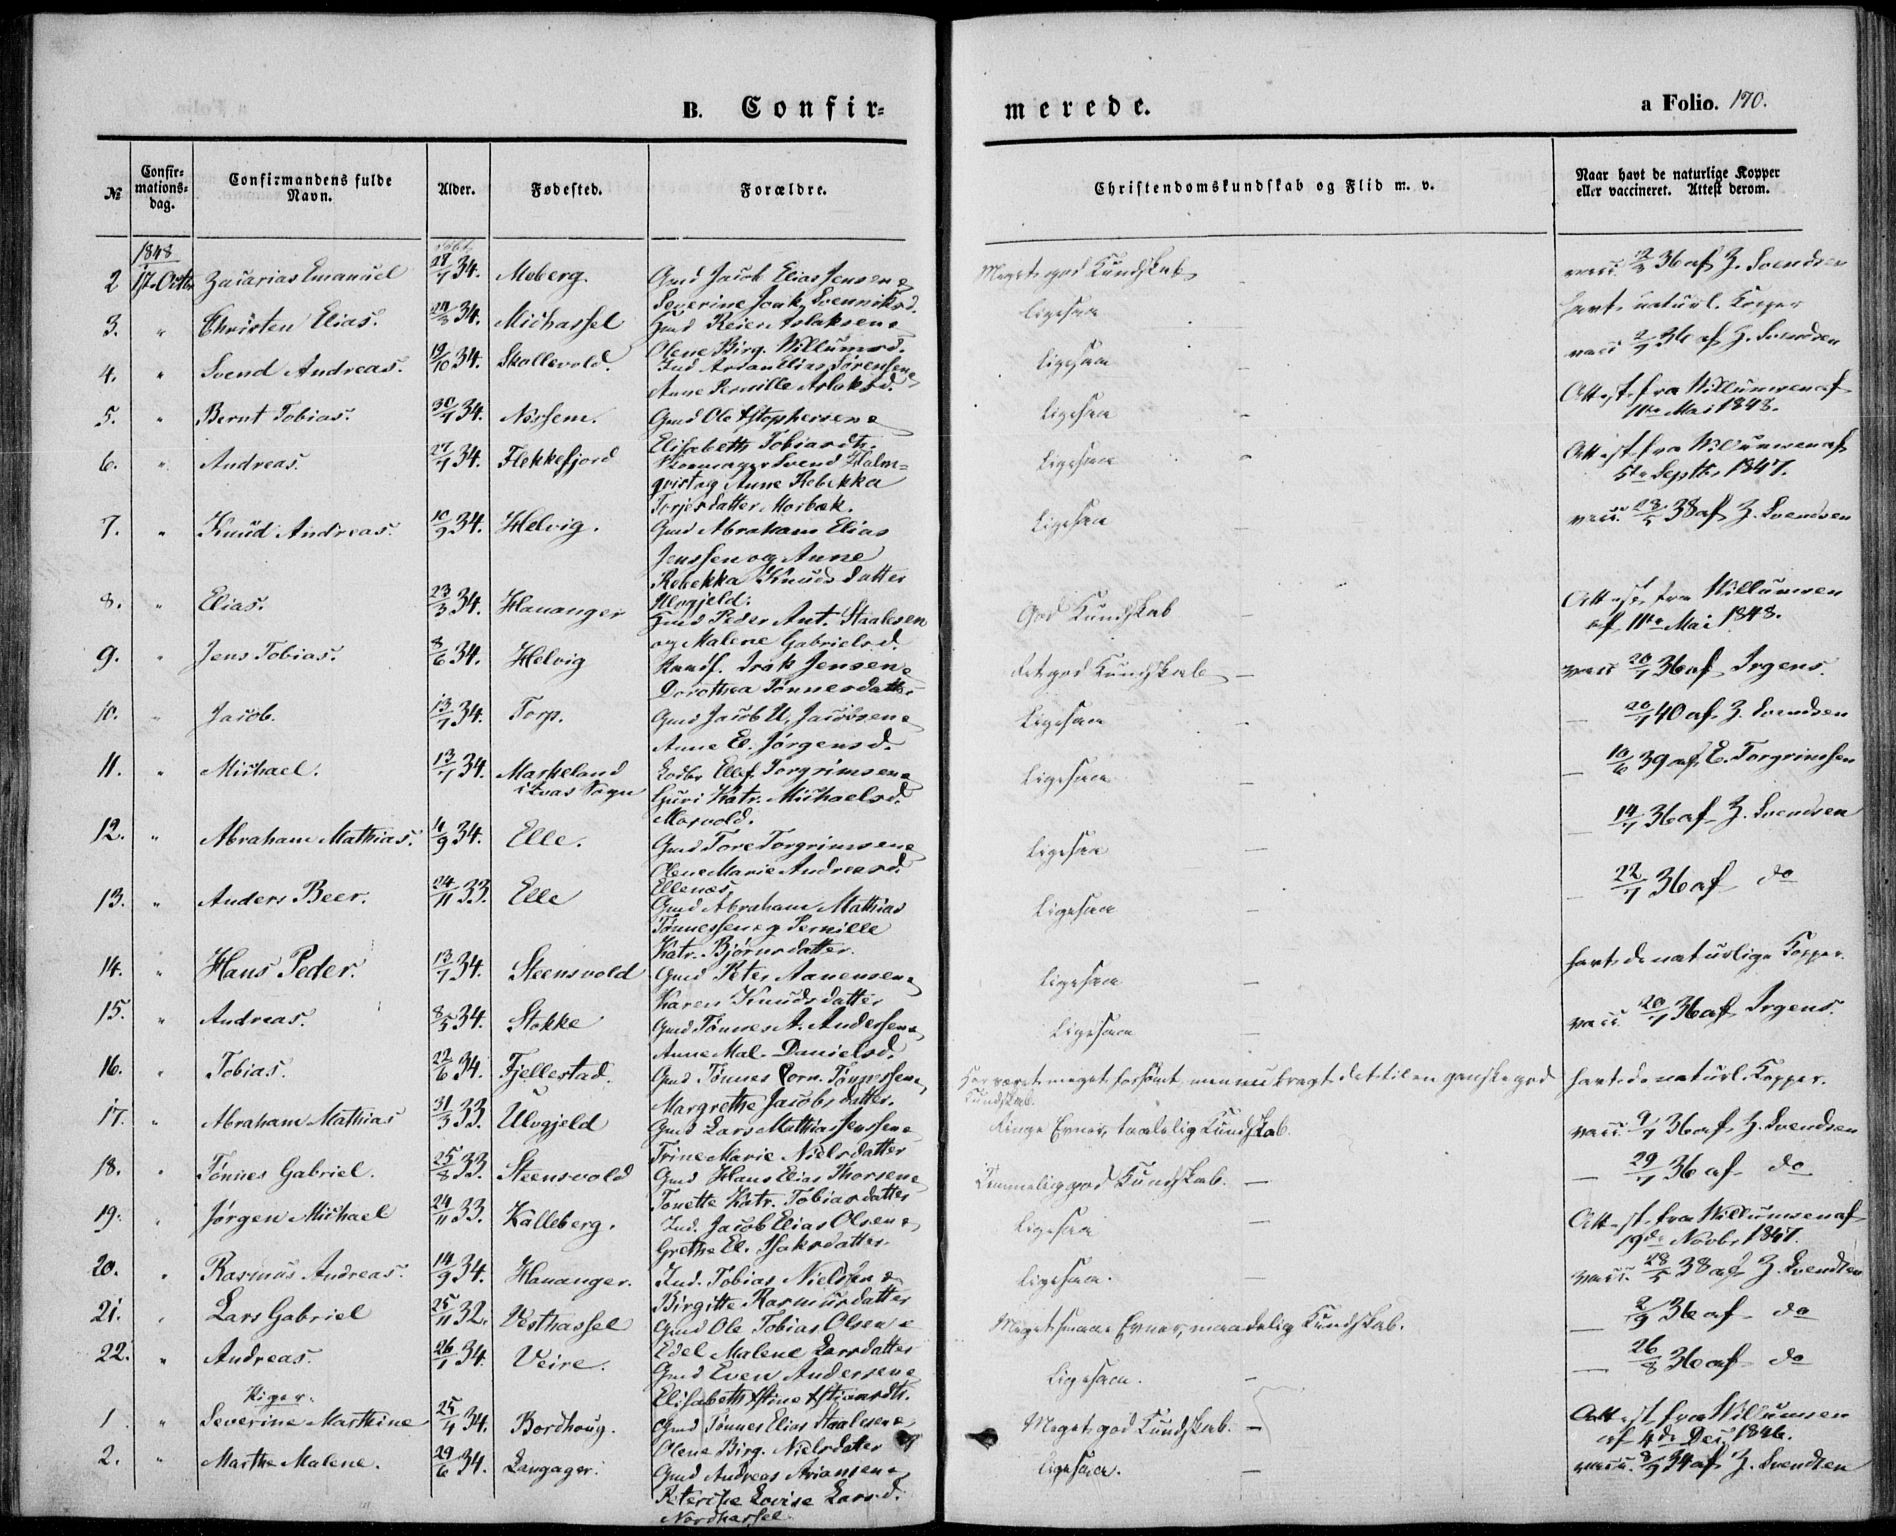 B. Confir-
merede.
a Folio. 170.
№
Confir-
mations-
dag.
Confirmandens fulde
Navn.
Alder.
Fødested.
Forældre.
Christendomskundskab og Flid m. v.
Naar havt de naturlige Kopper
eller vaccineret. Attest derom.
1848
2 17. Octbr Zacarias Emanuel 28/7 34. Moberg. Gmd Jacob Elias Jensen &
Severine Joak. Svenniksd.
Meget god Kundskab vacc. 36 af Z. Svendsen
3. " Christen Elias. 34. Midhassel Gmd Reier Aslaksen &
Olene Birg. Willumsd.
Ligesaa havt naturl. Kopper
4. " Svend Andreas. 19/10 34. Skollevold. Ind Adrian Elias Sørensen &
Anne Pernille Aslaksd.
Ligesaa vacc 36 af Z. Svendsen
5. " Bernt Tobias. 34. Nissem. Gmd Ole
Elisabeth Tobiasdtr.
Ligesaa Attest fra Willumsen af
11te Mai 1848.
6. " Andreas. 27/7 34. Flekkefjord Svend Halm-
qvist og Anne Rebekka
Torjesdatter Morbæk.
Ligesaa Attest fra Willumsen af
5te Septbr. 1847.
7. " Knud Andreas. 10/9 34. Helvig. Gmd Abraham Elias
Jenssen og Anne
Rebekka Knudsdatter
Ulvgjeld.
Ligesaa vacc. 28/5 38 af Z. Svendsen
8. " Elias. 23/3 34. Hananger Gmd Peder Ant. Staalesen
og Malene Gabrielsd.
God Kundskab Attest fra Willumsen
af 11te Mai 1848.
9. " Jens Tobias. 8/6 34. Helvig Huusf. Isak Jensen &
Dorothea Tønnesdatter
Ret god Kundskab vacc 20/7 36 af Irgens.
10. " Jacob. 13/7 34. Torp. Gmd Jacob U. Jacobsen &
Anne El. Jørgensd.
Ligesaa 20/7 40 af Z. Svendsen
11. " Michael. 13/7 34. Maskeland
i Qvas Sogn
Lods Ellef Torgrimsen &
Guri Katr. Michaelsd.
Ligesaa 10/6 39 af E. Torgrimsen
12. " Abraham Mathias. 4/9 34. Elle. Gmd Tore Torgrimsen &
Olene Marie Andreasd.
Ellenæs.
Ligesaa 14/7 36 af Z. Svendsen
13. " Anders Beer. 24/11 33. Elle Gmd Abraham Mathias
Tønnessen og Pernille
Katr. Bjørnsdatter.
Ligesaa 22/7 36 af do
14. " Hans Peder. 13/7 34. Steensvold Gmd Peter Aanensen &
Karen Knudsdatter
Ligesaa havt de naturlige Kopper.
15. " Andreas. 8/5 34. Stokke Gmd Tønnes A. Andersen &
Anne Mal. Danielsd.
Ligesaa vacc. 20/7 36 af Irgens.
16. " Tobias. 22/6 34. Fjellestad. Gmd Tønnes Corn. Tønnessen &
Margrethe Jacobsdatter.
Har været meget forsømt, men nu bragt det til en ganske god
Kundskab.
havt de naturl. Kopper.
17. " Abraham Mathias 31/3 33. Ulvgjeld Gmd Lars Mathias Jenssen &
Trine Marie Nielsdatter
Ringe Evner, taalelig Kundskab. vacc. 9/7 36 af Z. Svendsen
18. " Tønnes Gabriel. 25/8 33. Steensvold Gmd Hans Elias Thorsen &
Tonette Katr. Tobiasdatter
Temmelig god Kundskab. 29/7 36 af do
19. " Jørgen Michael 24/11 33. Kalleberg. Ind. Jacob Elias Olsen &
Grethe El. Isaksdatter.
Ligesaa Attest fra Willumsen af
19de Novbr 1847.
20. " Rasmus Andreas. 14/9 34. Hananger. Ind. Tobias Nielsen &
Birgitte Rasmusdatter
Ligesaa. vacc. 28/5 38 af Z. Svendsen
21. " Lars Gabriel 25/11 32. Vesthassel Gmd Ole Tobias Olsen &
Edel Malene Larsdatter
Meget smaae Evner, maadelig Kundskab. 36 af do
22. " Andreas. 26/1 34. Veire. Gmd Even Andersen &
Elisabeth Stine
Ligesaa. 26/8 36 af do
Piger.
1. " Severine Marthine 25/4 34. Bordhoug. Gmd Tønnes Elias Staalesen &
Olene Birg. Nielsdatter
Meget god Kundskab. Attest fra Willumsen
af 4de Dec. 1846.
2. " Marthe Malene. 29/6 34. Langager. Gmd Andreas Ariansen &
Lovise Larsd.
Nordhassel.
Ligesaa. vacc. af Z. Svendsen